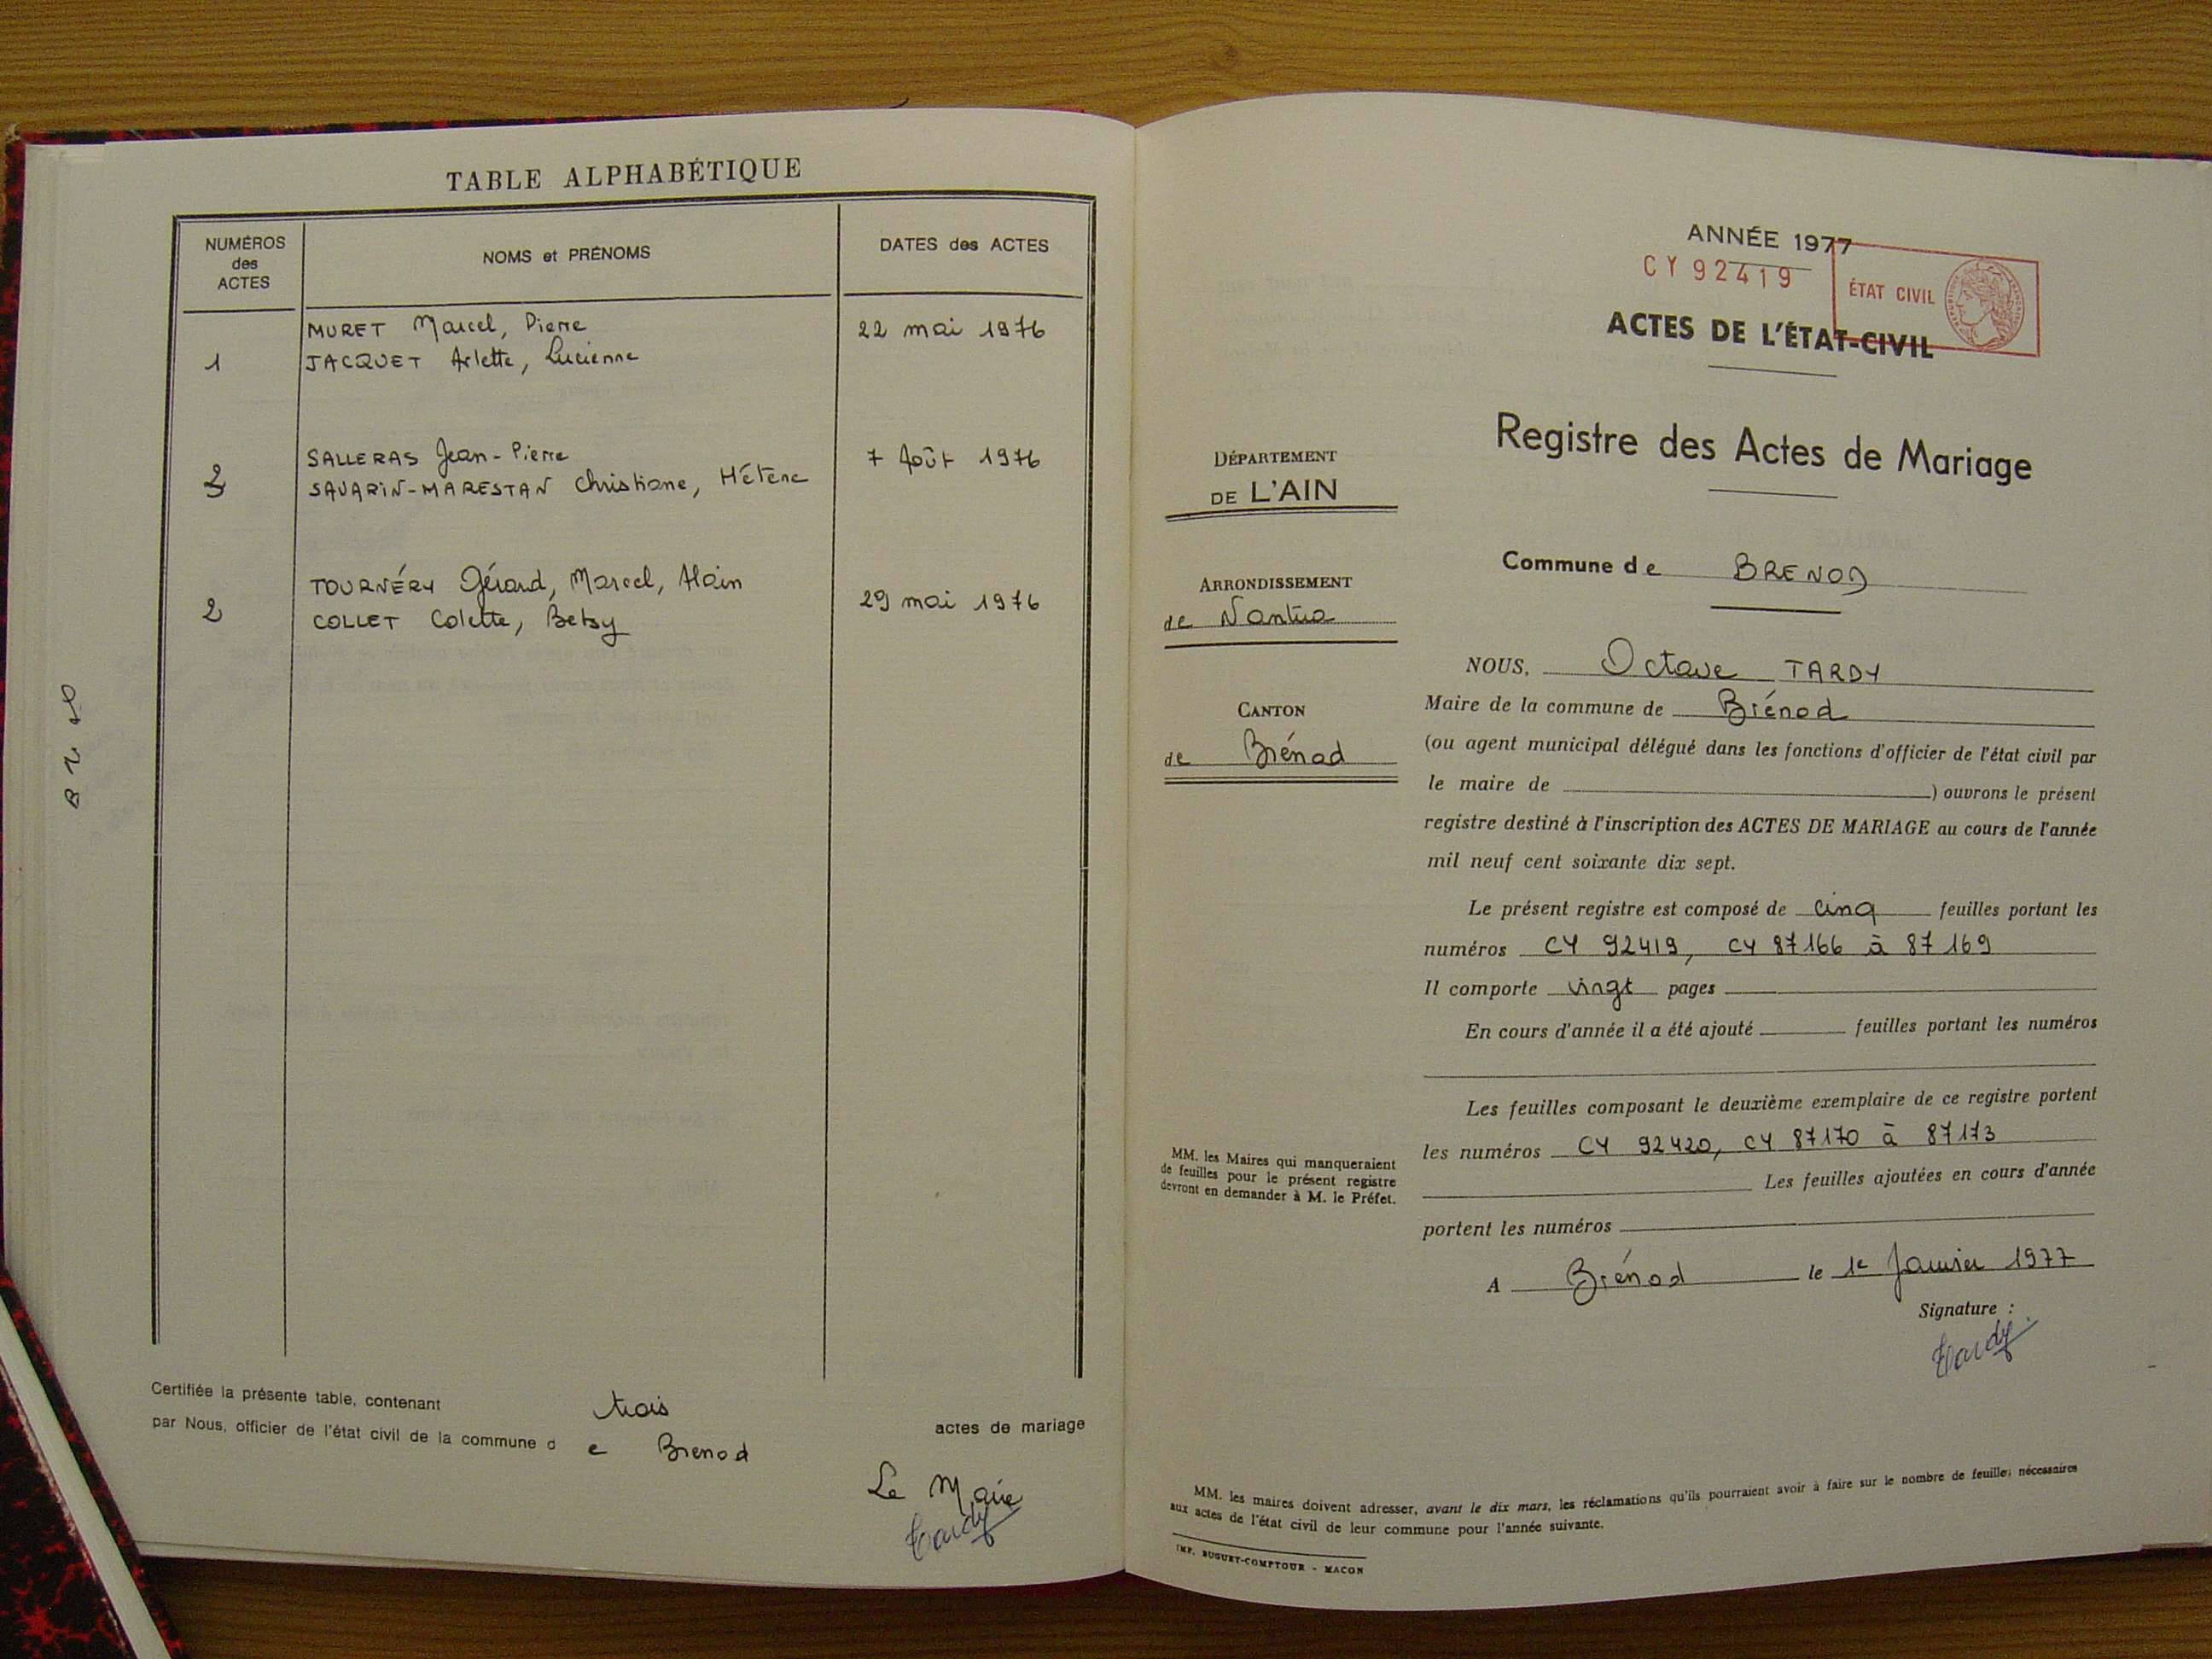 TABLE ALPHABÉTIQUE
NUMÉROS
des
ACTES
NOMS et PRÉNOMS
DATES des ACTES
MURET Marcel, Pierre
22 mai 1976
1
JACQUET Arlette, Lucienne
SALLERAS Jean-Pierre
7 Août 1976
3
SAVARIN-MARESTAN Christiane, Hélène
TOURNÉRY Gérard, Marcel, Alain
29 mai 1976
2
COLLET Colette, Betsy
Certifiée la présente table, contenant trois actes de mariage
par Nous, officier de l'état civil de la commune de Brenod
Le Maire
Tardy
ANNÉE 1977
CY 92419
ÉTAT CIVIL
ACTES DE L'ÉTAT-CIVIL
Registre des Actes de Mariage
DÉPARTEMENT
DE L'AIN
Commune de BRENOD
ARRONDISSEMENT
de Nantua
CANTON
de Brénod
NOUS, Octave TARDY
Maire de la commune de Brénod
(ou agent municipal délégué dans les fonctions d'officier de l'état civil par
le maire de ) ouvrons le présent
registre destiné à l'inscription des ACTES DE MARIAGE au cours de l'année
mil neuf cent soixante dix sept.
Le présent registre est composé de cinq feuilles portant les
numéros CY 92419, CY 87166 à 87169
Il comporte vingt pages
En cours d'année il a été ajouté feuilles portant les numéros
Les feuilles composant le deuxième exemplaire de ce registre portent
les numéros CY 92420, CY 87170 à 87173
Les feuilles ajoutées en cours d'année
portent les numéros
MM. les Maires qui manqueraient
de feuilles pour le présent registre
devront en demander à M. le Préfet.
A Brénod le 1e Janvier 1977
Signature :
Tardy
MM. les maires doivent adresser, avant le dix mars, les réclamations qu'ils pourraient avoir à faire sur le nombre de feuilles nécessaires
aux actes de l'état civil de leur commune pour l'année suivante.
IMP. BUGUET-COMPTOUR - MACON